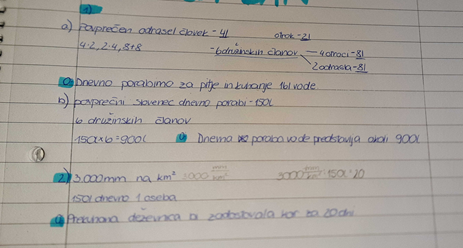 1)
a) Povprečen odrasel človek - 4l otrok - 2l
4·2, 2·4, 8+8 - 6 družinskih članov - 4 otroci - 8l
2 odrasla - 8l
O: Dnevno porabimo za pitje in kuhanje 16l vode.
b) povprečni slovenec dnevno porabi - 150l
6 družinskih članov
150l x 6 = 900l O: Dnevna poraba vode predstavlja okoli 900l
2) 3.000mm na km²
150l dnevno 1 oseba
O: Prekuhana deževnica bi zadostovala kar za 20 dni